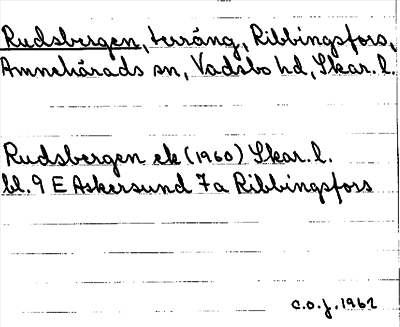 Rudsbergen, terräng, Ribbingsfors,
Amnehärads sn, Vadsbo hd, Skar. l.
Rudsbergen ek (1960) Skar. l.
bl. 9 E Askersund 7a Ribbingsfors
C.O.J. 1962